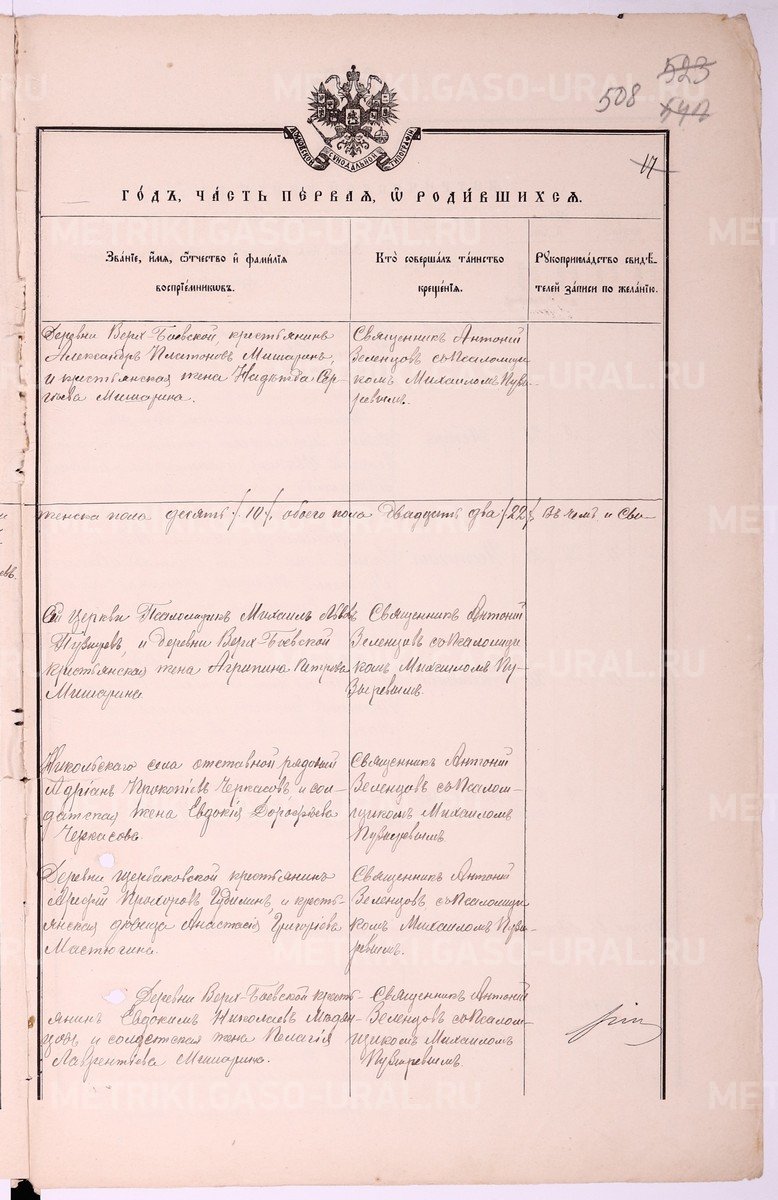 523
508
МОСКОВСКОЙ СИНОДАЛЬНОЙ ТИПОГРАФІИ
17
ГОДЪ, ЧАСТЬ ПЕРВАЯ, Ѡ РОДИВШИХСЯ.
Званіе, имя, отчество и фамилія
воспріемниковъ.
Кто совершалъ таинство
крещенія.
Рукоприкладство свидѣ-
телей записи по желанію.
Деревни Верх-Боевской, крестьянинъ
Александръ Платоновъ Мишаринъ,
и крестьянская жена Надежда Сер-
гѣева Мишарина.
Священникъ Антоній
Зеленцовъ съ псаломщи-
комъ Михаиломъ Пузы-
ревымъ.
женска пола десять /10/, обоего пола двадцать два /22/ Въ чемъ и Сви-
Сей церкви Псаломщикъ Михаилъ Львовъ
Пузыревъ и деревни Верх-Боевской
крестьянская жена Агрипина Петрова
Мишарина
Священникъ Антоній
Зеленцовъ съ псаломщи-
комъ Михаиломъ Пу-
зыревымъ.
Никольскаго села отставной рядовой
Адріанъ Прокопіевъ Черкасовъ, и сол-
датская жена Евдокія Дорофѣева
Черкасова
Священникъ Антоній
Зеленцовъ съ псалом-
щикомъ Михаиломъ
Пузыревымъ.
Деревни Щербаковской крестьянинъ
Прохоровъ Губилинъ, и кресть-
янская дѣвица Анастасія Григоріева
Мастюгина.
Священникъ Антоній
Зеленцовъ съ псаломщи-
комъ Михаиломъ Пузы-
ревымъ.
Деревни Верх-Боевской кресть-
янинъ Евдокимъ Николаевъ
и солдатская жена Пелагія
Лаврентіева Мишарина.
Священникъ Антоній
Зеленцовъ съ псалом-
щикомъ Михаиломъ
Пузыревымъ.
METRIKI.GASO-URAL.RU